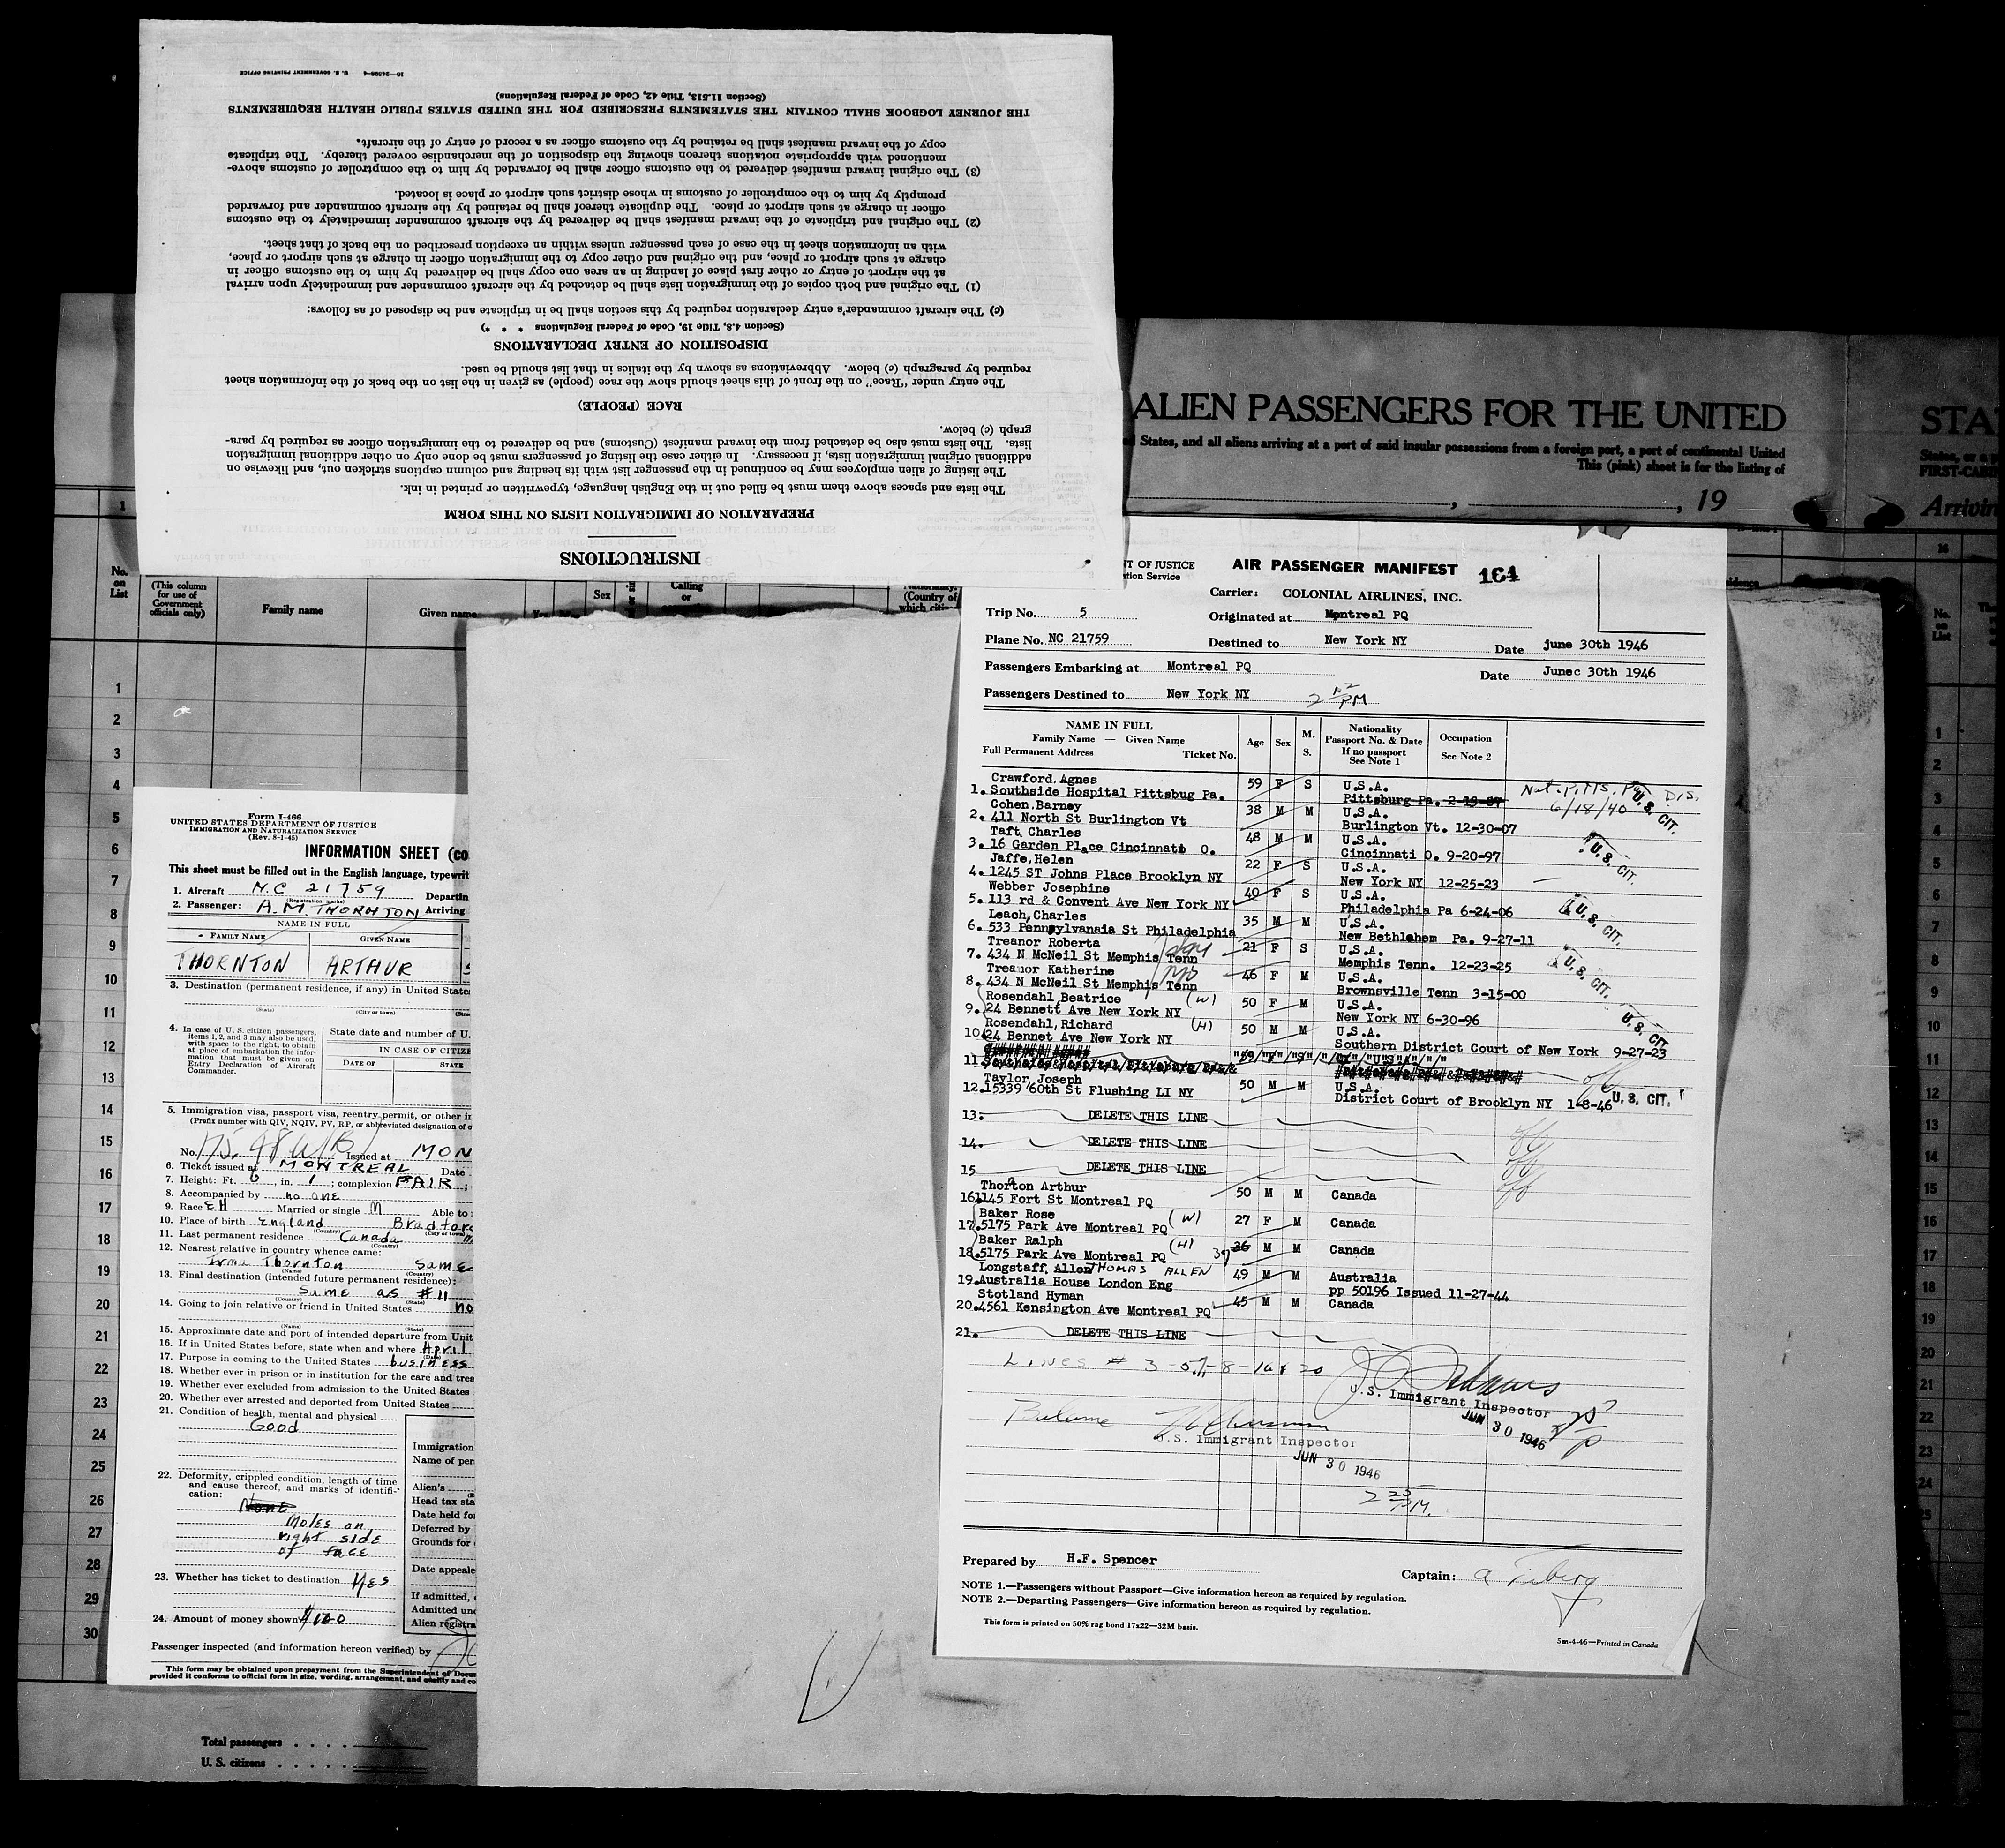 16—24598-4 U. S. GOVERNMENT PRINTING OFFICE
INSTRUCTIONS
PREPARATION OF IMMIGRATION LISTS ON THIS FORM
The lists and spaces above them must be filled out in the English language, typewritten or printed in ink.
The listing of alien employees may be continued in the passenger list with its heading and column captions stricken out, and likewise on
additional original immigration lists, if necessary. In either case the listing of passengers must be done only on other additional immigration
lists. The lists must also be detached from the inward manifest (Customs) and be delivered to the immigration officer as required by para-
graph (c) below.
RACE (PEOPLE)
The entry under "Race" on the front of this sheet should show the race (people) as given in the list on the back of the information sheet
required by paragraph (c) below. Abbreviations as shown by the italics in that list should be used.
DISPOSITION OF ENTRY DECLARATIONS
(Section 4.8, Title 19, Code of Federal Regulations * * *)
(c) The aircraft commander's entry declaration required by this section shall be in triplicate and be disposed of as follows:
(1) The original and both copies of the immigration lists shall be detached by the aircraft commander and immediately upon arrival
at the airport of entry or other first place of landing in an area one copy shall be delivered by him to the customs officer in
charge at such airport or place, and the original and other copy to the immigration officer in charge at such airport or place,
with an information sheet in the case of each passenger unless within an exception prescribed on the back of that sheet.
(2) The original and triplicate of the inward manifest shall be delivered by the aircraft commander immediately to the customs
officer in charge at such airport or place. The duplicate thereof shall be retained by the aircraft commander and forwarded
promptly by him to the comptroller of customs in whose district such airport or place is located.
(3) The original inward manifest delivered to the customs officer shall be forwarded by him to the comptroller of customs above-
mentioned with appropriate notations thereon showing the disposition of the merchandise covered thereby. The triplicate
copy of the inward manifest shall be retained by the customs officer as a record of entry of the aircraft.
THE JOURNEY LOGBOOK SHALL CONTAIN THE STATEMENTS PRESCRIBED FOR THE UNITED STATES PUBLIC HEALTH REQUIREMENTS
(Section 11.513, Title 42, Code of Federal Regulations)
ALIEN PASSENGERS FOR THE UNITED
STA
States, and all aliens arriving at a port of said insular possessions from a foreign port, a port of continental United
This (pink) sheet is for the listing of
FIRST-CABI
, 19
Arrivin
No. on List
(This column for use of Government officials only)
Family name
Given name
Sex
Calling or
(Country of which citi
Form I-466
UNITED STATES DEPARTMENT OF JUSTICE
IMMIGRATION AND NATURALIZATION SERVICE
(Rev. 8-1-45)
INFORMATION SHEET (CO
This sheet must be filled out in the English language, typewrit
1. Aircraft N.C 21759 Departin
(Registration marks)
2. Passenger: A.M. THORNTON Arriving
NAME IN FULL
FAMILY NAME GIVEN NAME
THORNTON ARTHUR
3. Destination (permanent residence, if any) in United State
(State) (City or town)
4. In case of U. S. citizen passengers, items 1, 2, and 3 may also be used, with space to the right, to obtain at place of embarkation the information that must be given on Entry Declaration of Aircraft Commander.
State date and number of U.
IN CASE OF CITIZE
DATE OF STATE
5. Immigration visa, passport visa, reentry permit, or other i
(Prefix number with QIV, NQIV, PV, RP, or abbreviated designation of o
No. Issued at MON
6. Ticket issued at MONTREAL Date
7. Height: Ft. 6, in. 1; complexion FAIR;
8. Accompanied by no one
9. Race EH Married or single M Able to
10. Place of birth England Bradfor
(Country) (City or town)
11. Last permanent residence Canada
(Country)
12. Nearest relative in country whence came:
Irma Thornton Same
(Name) (Country)
13. Final destination (intended future permanent residence):
Same as #11
(Country) (State)
14. Going to join relative or friend in United States no
(Name) (State)
15. Approximate date and port of intended departure from Unit
16. If in United States before, state when and where April
(Date)
17. Purpose in coming to the United States business
18. Whether ever in prison or in institution for the care and trea
19. Whether ever excluded from admission to the United States
20. Whether ever arrested and deported from United States
21. Condition of health, mental and physical
Good
22. Deformity, crippled condition, length of time and cause thereof, and marks of identification:
None
Moles on
right side
of face
23. Whether has ticket to destination Yes
24. Amount of money shown $100
Immigration
Name of per
Alien's
Head tax sta
Date held fo
Deferred by
Grounds for
Date appeale
If admitted,
Admitted und
Alien registra
Passenger inspected (and information hereon verified) by
This form may be obtained upon prepayment from the Superintendent of Docu
provided it conforms to official form in size, wording, arrangement, and quality and co
Total passengers
U. S. citizens
T OF JUSTICE
tion Service
AIR PASSENGER MANIFEST 164
Carrier: COLONIAL AIRLINES, INC.
Trip No. 5 Originated at Montreal PQ
Plane No. NC 21759 Destined to New York NY Date june 30th 1946
Passengers Embarking at Montreal PQ Date Junec 30th 1946
Passengers Destined to New York NY
NAME IN FULL
Family Name — Given Name
Full Permanent Address Ticket No.
Age Sex M. S.
Nationality Passport No. & Date If no passport See Note 1
Occupation See Note 2
Crawford, Agnes 59 F S U.S.A.
1. Southside Hospital Pittsbug Pa. Pittsburg Pa. 2-19-87
6/18/40 U.S. CIT.
Cohen, Barney 38 M M U.S.A.
2. 411 North St Burlington Vt Burlington Vt. 12-30-07
Taft, Charles 48 M M U.S.A.
3. 16 Garden Place Cincinnati O. Cincinnati O. 9-20-97
U.S. CIT.
Jaffe, Helen 22 F S U.S.A.
4. 1245 ST Johns Place Brooklyn NY New York NY 12-25-23
Webber Josephine 40 F S U.S.A.
5. 113 rd & Convent Ave New York NY Philadelphia Pa 6-24-06
U.S. CIT.
Leach, Charles 35 M M U.S.A.
6. 533 Pennsylvansia St Philadelphia New Bethlehem Pa. 9-27-11
Treanor Roberta 21 F S U.S.A.
7. 434 N McNeil St Memphis Tenn Memphis Tenn. 12-23-25
U.S. CIT.
Treanor Katherine 46 F M U.S.A.
8. 434 N McNeil St Memphis Tenn Brownsville Tenn 3-15-00
Rosendahl, Beatrice (W) 50 F M U.S.A.
9. 24 Bennett Ave New York NY New York NY 6-30-96
U.S. CIT.
Rosendahl, Richard (H) 50 M M U.S.A.
10. 24 Bennet Ave New York NY Southern District Court of New York 9-27-23
11.
Taylor, Joseph 50 M M U.S.A.
12. 15339 60th St Flushing LI NY District Court of Brooklyn NY 1-8-46 U.S. CIT.
13. DELETE THIS LINE
14. DELETE THIS LINE
15 DELETE THIS LINE
Thorton Arthur 50 M M Canada
16. 1145 Fort St Montreal PQ
Baker Rose (W) 27 F M Canada
17. 5175 Park Ave Montreal PQ
Baker Ralph (H) 37 36 M M Canada
18. 5175 Park Ave Montreal PQ
Longstaff, Allen THOMAS ALLEN 49 M M Australia
19. Australia House London Eng pp 50196 Issued 11-27-44
Stotland Hyman 45 M M Canada
20. 4561 Kensington Ave Montreal PQ
21. DELETE THIS LINE
Lines # 3-5-7-8-16 & 20
U.S. Immigrant Inspector
JUN 30 1946
U.S. Immigrant Inspector
JUN 30 1946
2 25 PM.
Prepared by H.F. Spencer Captain:
NOTE 1.—Passengers without Passport—Give information hereon as required by regulation.
NOTE 2.—Departing Passengers—Give information hereon as required by regulation.
This form is printed on 50% rag bond 17x22—32M basis.
5m-4-46—Printed in Canada